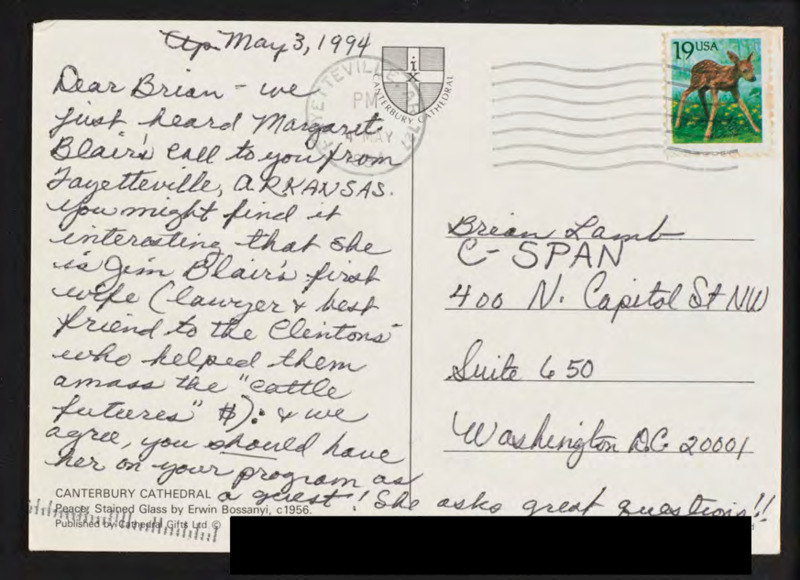 May 3, 1994
Dear Brian - we
just heard Margaret
Blair's call to you from
Fayetteville, ARKANSAS.
You might find it
interesting that she
is Jim Blair's first
wife (lawyer & best
friend to the Clintons
who helped them
amass the "cattle
futures" $): & we
agree, you should have
her on your program as
a guest! She asks great questions!!
CANTERBURY CATHEDRAL
Peace: Stained Glass by Erwin Bossanyi, c1956.
Published by Cathedral Gifts Ltd ©
i
x
CANTERBURY CATHEDRAL
FAYETTEVILLE, AR 727
PM
MAY
19 USA
Brian Lamb
C-SPAN
400 N. Capitol St NW
Suite 650
Washington D.C. 20001